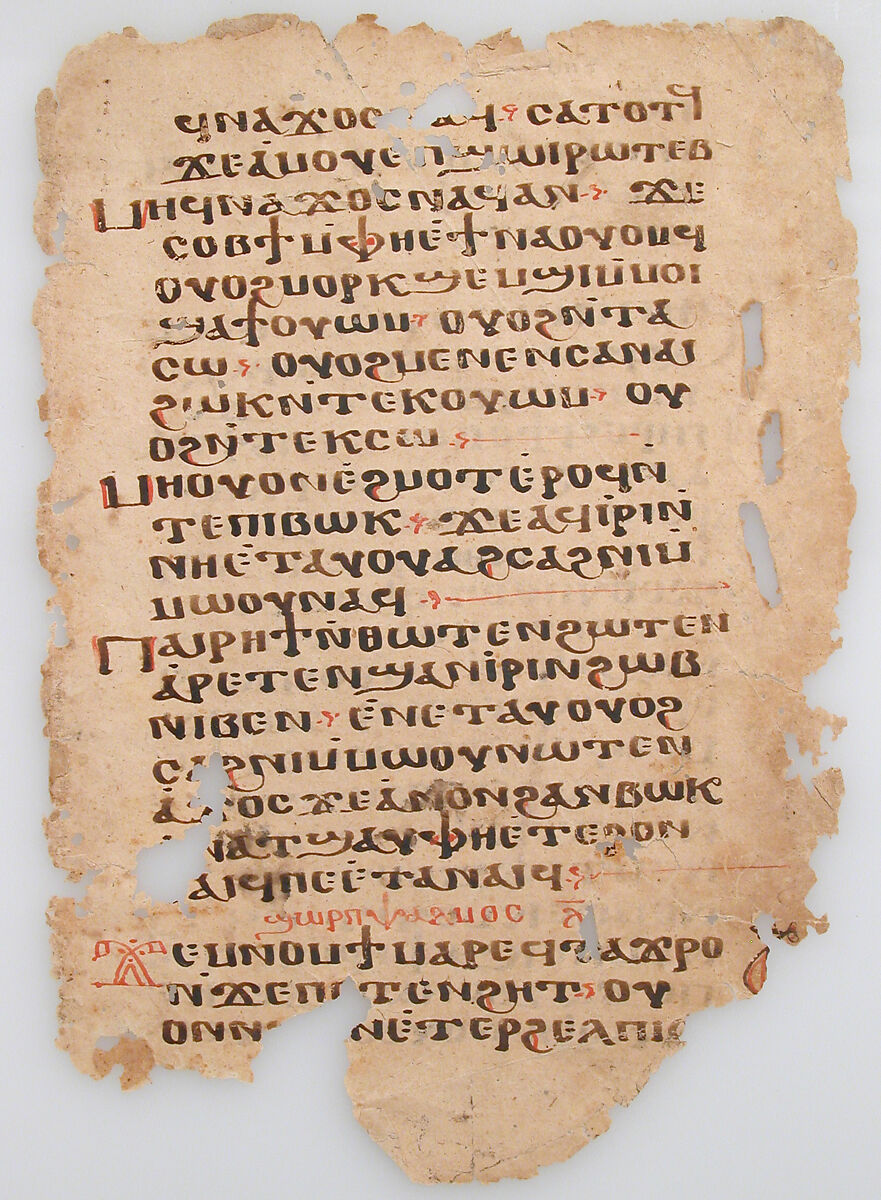 ϥⲛⲁϫⲟⲥ ⲁϥ ⲥⲁⲧⲟⲧϥ
ϫⲉⲁⲙⲟⲩⲉⲡϣⲱⲓⲣⲱⲧⲉⲃ
ⲙⲏϥⲛⲁϫⲟⲥⲛⲁϥⲁⲛ ϫⲉ
ⲥⲟⲃϯⲙ̇ⲫⲏⲉ̇ϯⲛⲁⲟⲩⲟⲙϥ
ⲟⲩⲟϩⲙⲟⲣⲕϣⲉⲙϣⲓⲙ̇ⲙⲟⲓ
ϣⲁϯⲟⲩⲱⲙ ⲟⲩⲟϩⲛ̇ⲧⲁ
ⲥⲱ ⲟⲩⲟϩⲙⲉⲛⲉⲛⲥⲁⲛⲁⲓ
ϩⲱⲕⲛ̇ⲧⲉⲕⲟⲩⲱⲙ ⲟⲩ
ⲟϩⲛ̇ⲧⲉⲕⲥⲱ
ⲙⲏⲟⲩⲟⲛⲉ̇ϩⲙⲟⲧⲉ̇ⲣⲟϥⲛ̇
ⲧⲉⲡⲓⲃⲱⲕ ϫⲉⲁϥⲓ̇ⲣⲓⲛ̇
ⲛⲏⲉ̇ⲧⲁⲩⲟⲩⲁϩⲥⲁϩⲛⲓⲙ̇
ⲙⲱⲟⲩⲛⲁϥ
ⲡⲁⲓⲣⲏϯⲛ̇ⲑⲱⲧⲉⲛϩⲱⲧⲉⲛ
ⲁ̇ⲣⲉⲧⲉⲛϣⲁⲛⲓ̇ⲣⲓⲛϩⲱⲃ
ⲛⲓⲃⲉⲛ ⲉ̇ⲛⲉⲧⲁⲩⲟⲩⲟϩ
ⲥⲁϩⲛⲓⲙ̇ⲙⲱⲟⲩⲛⲱⲧⲉⲛ
ⲁ̇ϫⲟⲥϫⲉⲁ̇ⲛⲟⲛϩⲁⲛⲃⲱⲕ
ⲛⲁⲧϣⲁⲩⲫⲏⲉ̇ⲧⲉⲣⲟⲛ
ⲁⲓϥⲡⲉⲉ̇ⲧⲁⲛⲁⲓϥ
ϣⲱⲣⲡⲯⲁⲗⲙⲟⲥ ⲗ̅
ϫⲉⲙⲛⲟⲙϯⲙⲁⲣⲉϥⲧⲁϫⲣⲟ
ⲛ̇ϫⲉⲡⲉⲧⲉⲛϩⲏⲧ ⲟⲩ
ⲟⲛⲛ ⲛⲉ̇ⲧⲉⲣϩⲉⲗⲡⲓⲥ